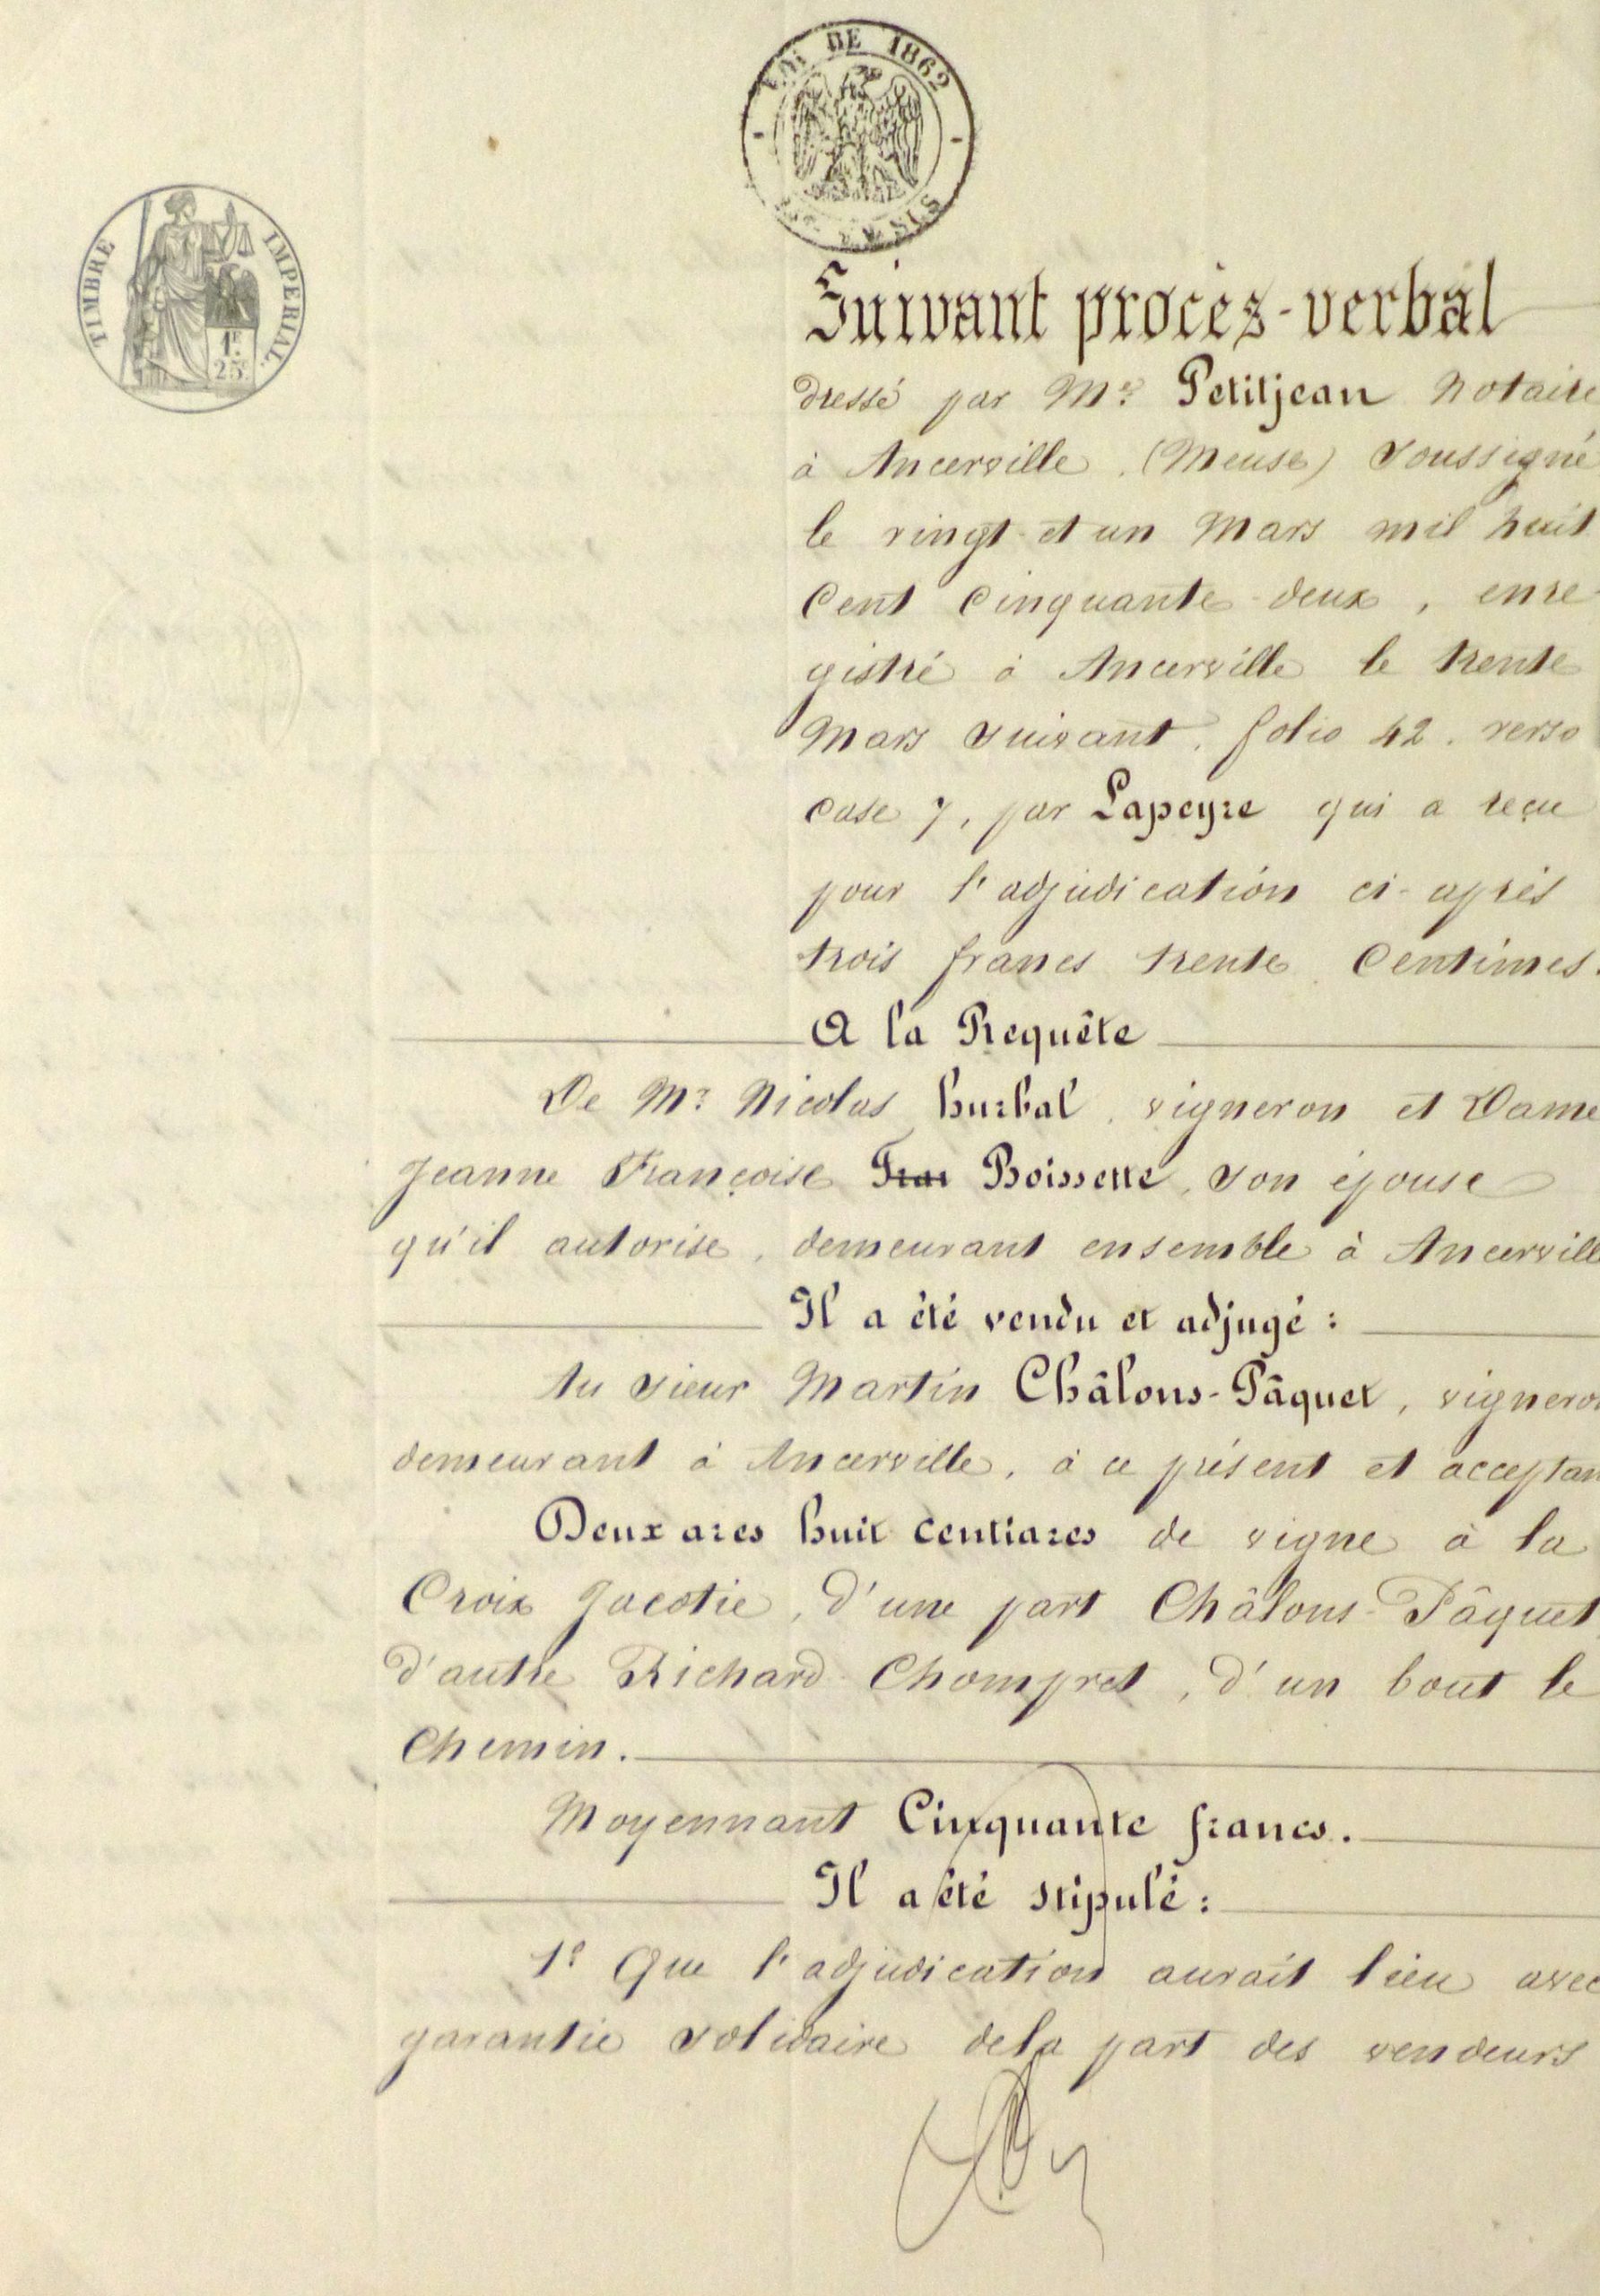 LOI DE 1862
TIMBRE IMPERIAL
1F.
25c
Suivant procès-verbal
dressé par Me. Petitjean Notaire
à Ancerville (Meuse) soussigné
le vingt et un Mars mil huit
Cent Cinquante-deux, enre-
gistré à Ancerville le trente
Mars suivant, folio 42. verso
case 7, par Lapeyre qui a reçu
pour l'adjudication ci-après
trois francs trente Centimes.
A la Requête
De Mr. Nicolas hurbal, vigneron et Dame
Jeanne Françoise Boissette, son épouse
qu'il autorise, demeurant ensemble à Ancerville
Il a été vendu et adjugé :
Au sieur Martin Châlons-Pâquet, vigneron
demeurant à Ancerville, à ce présent et acceptan
Deux ares huit centiares de vigne à la
Croix Jacotie, d'une part Châlons-Pâquet,
d'autre Richard-Chompret, d'un bout le
Chemin.
Moyennant Cinquante francs.
Il a été stipulé :
1° Que l'adjudication aurait lieu avec
garantie solidaire dela part des vendeurs